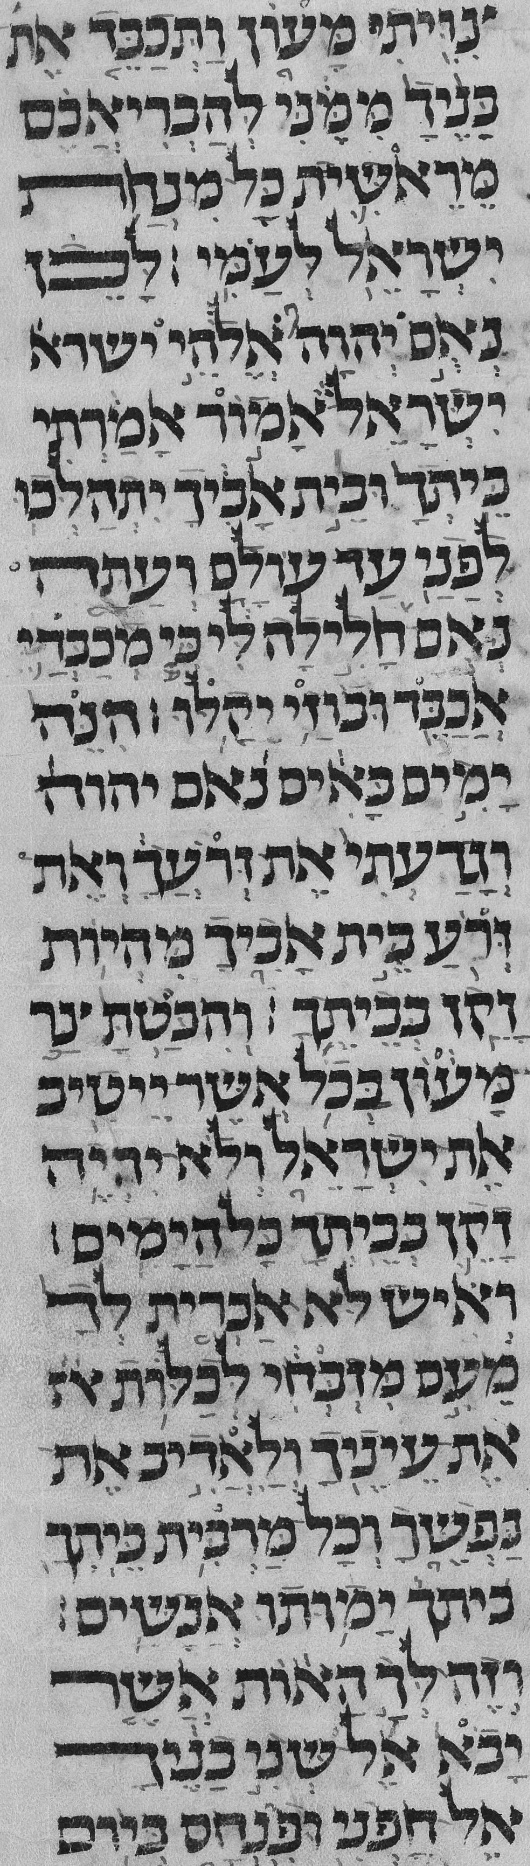 צויתי מעון ותכבד את
בניך ממני להבריאכם
מראשית כל מנחת
ישראל לעמי ׃ לכן
נאם יהוה אלהי ישרא
ישראל אמור אמרתי
ביתך ובית אביך יתהלכו
לפני עד עולם ועתה
נאם חלילה לי כי מכבדי
אכבד ובוזי יקלו ׃ הנה
ימים באים נאם יהוה
וגדעתי את זרעך ואת
זרע בית אביך מהיות
זקן בביתך ׃ והבטת צר
מעון בכל אשר ייטיב
את ישראל ולא יהיה
זקן בביתך כל הימים ׃
ואיש לא אכרית לך
מעם מזבחי לכלות
את עיניך ולאדיב את
נפשך וכל מרבית ביתך
ביתך ימותו אנשים ׃
וזה לך האות אשר
יבא אל שני בניך
אל חפני ופנחס ביום